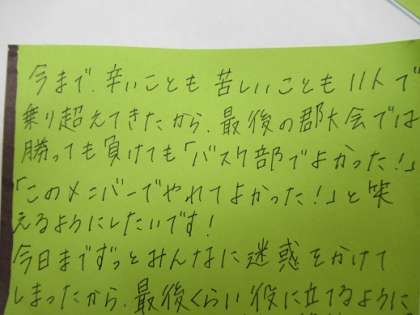 今まで、辛いことも苦しいことも11人で
乗り超えてきたから、最後の郡大会では
勝っても負けても「バスケ部でよかった!」
「このメンバーでやれてよかった!」と笑
えるようにしたいです!
今日までずっとみんなに迷惑をかけて
しまったから、最後くらい役に立てるように